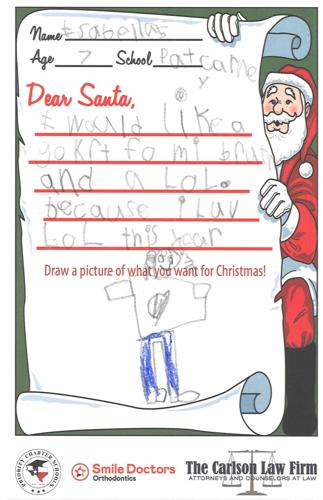 Name Esabellas
Age 7 School Patcame
y
Dear Santa,
I would like a
gokrt fo mi brun
and a LoL.
because i Luv
LoL this year
Draw a picture of what you want for Christmas!
PRIORITY CHARTER SCHOOLS
Smile Doctors
Orthodontics
The Carlson Law Firm
ATTORNEYS AND COUNSELORS AT LAW